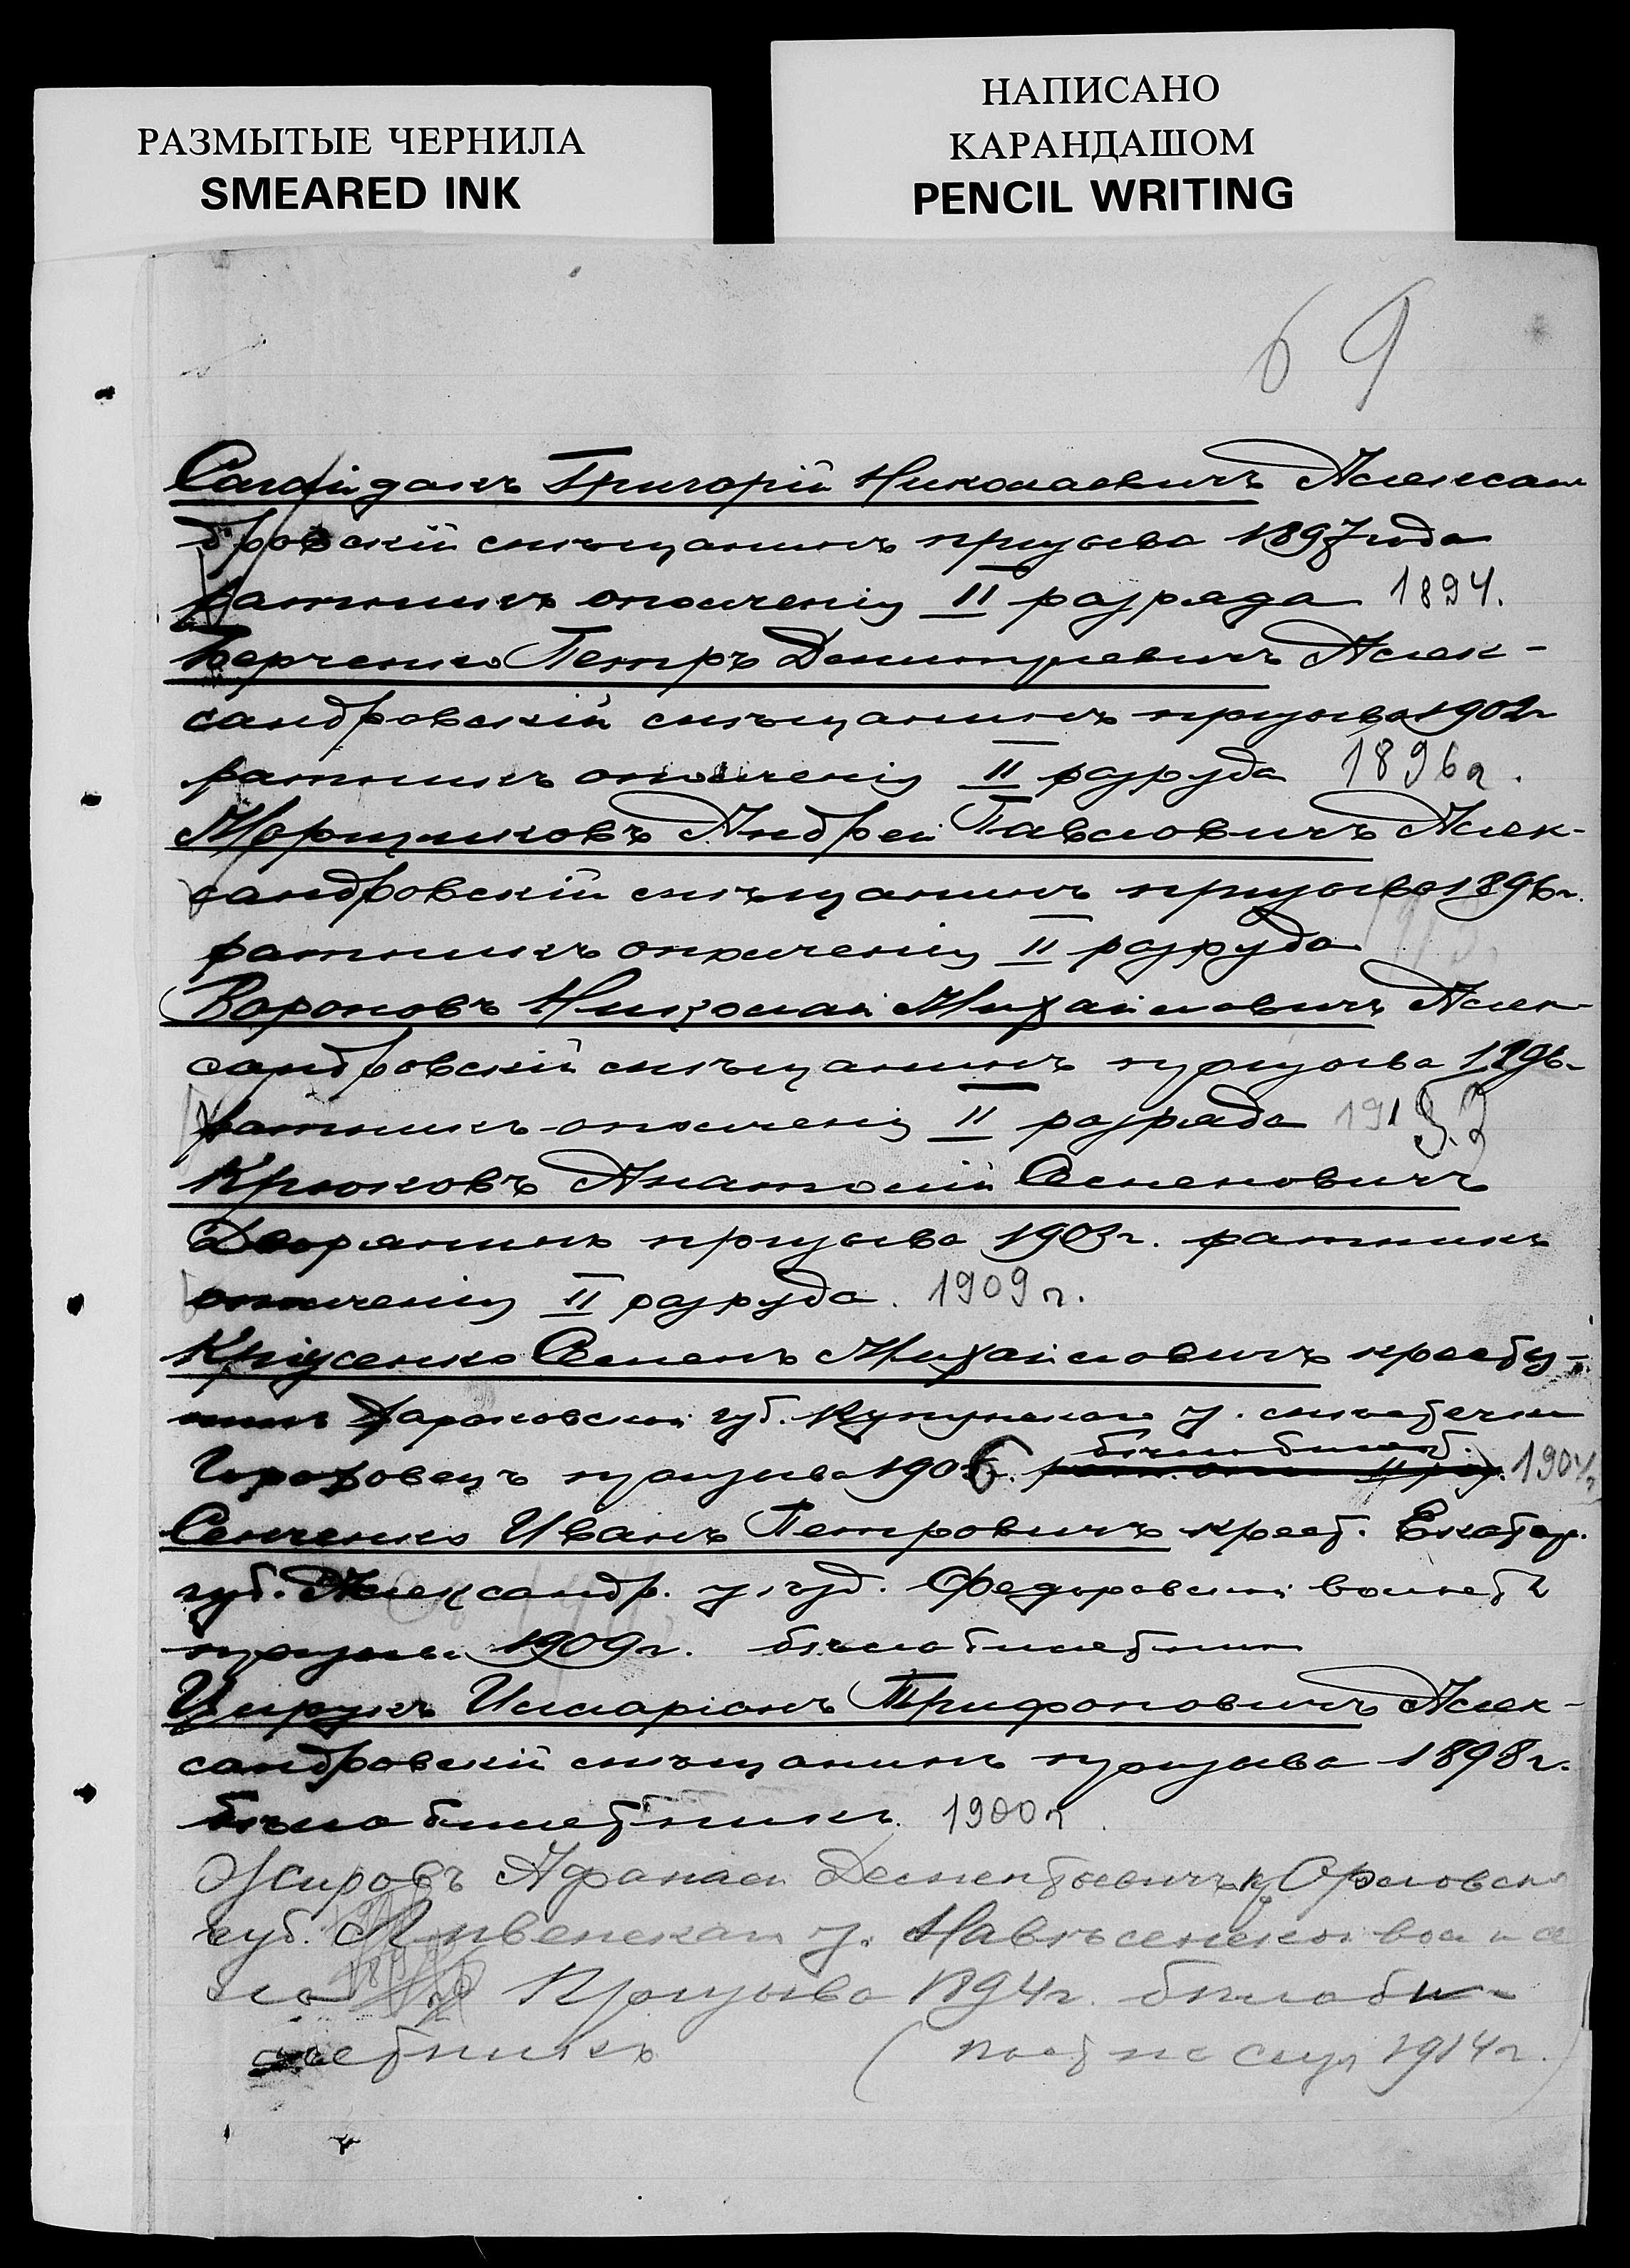 РАЗМЫТЫЕ ЧЕРНИЛА
SMEARED INK
НАПИСАНО
КАРАНДАШОМ
PENCIL WRITING
69
Григорій Николаевичъ Алексан
дровскій мѣщанинъ призыва 1897 года
ратникъ ополченія II разряда 1894.
Петръ Дмитріевичъ Алек-
сандровскій мѣщанинъ призыва 1902 г
ратникъ ополченія II разряда 1896 г.
Морщиковъ Андрей Павловичъ Алек-
сандровскій мѣщанинъ призыва 1896 г.
ратникъ ополченія II разряда
Вороновъ Николай Михайловичъ Алек-
сандровскій мѣщанинъ призыва 1896
ратникъ ополченія II разряда
Крюковъ Анатолій Семеновичъ
Дворянинъ призыва 1903 г. ратникъ
ополченія II разряда. 1909 г.
Семенъ Михайловичъ крестья-
нинъ Харьковской губ. Купянскаго у. мѣстечка
призыва 1906 бѣлобилет. 1904
Сенченко Иванъ Петровичъ крест. Екатер.
губ. Александр. уѣзд. Федоровской волости
призыва 1909 г. бѣлобилетник
Цирукъ Илларіонъ Трифоновичъ Алек-
сандровскій мѣщанинъ призыва 1898 г.
бѣлобилетникъ. 1900 г.
Жировъ Афанасій Дементьевичъ кр Орловской
губ. Ливенскаго у.
Призыва 1894 г. бѣлоби-
летникъ (пост на служ 1914 г.)